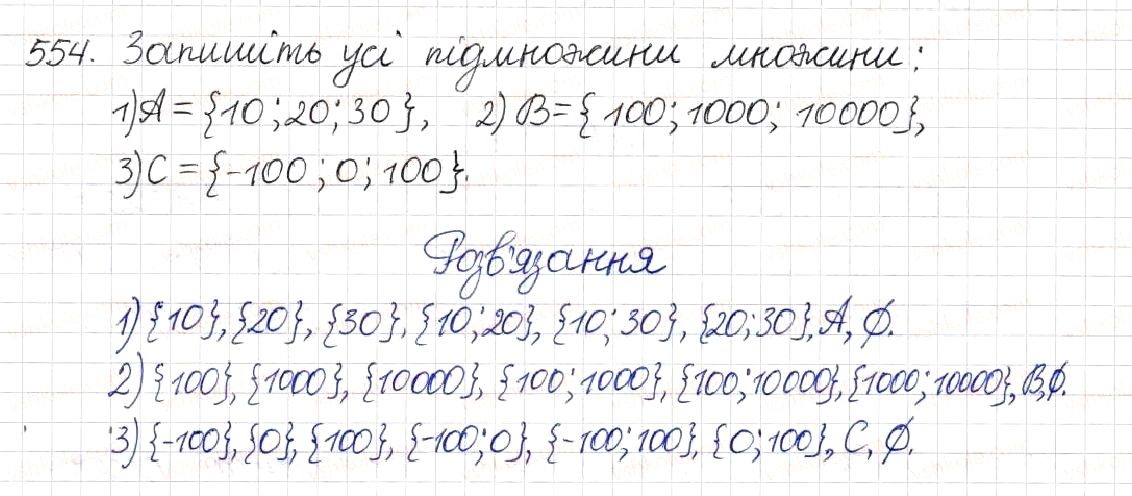 554. Запишіть усі підмножини множини:
1) A = {10; 20; 30}, 2) B = {100; 1000; 10000},
3) C = {-100; 0; 100}.
Розв'язання
1) {10}, {20}, {30}, {10; 20}, {10; 30}, {20; 30}, A, Ø.
2) {100}, {1000}, {10000}, {100; 1000}, {100; 10000}, {1000; 10000}, B, Ø.
3) {-100}, {0}, {100}, {-100; 0}, {-100; 100}, {0; 100}, C, Ø.